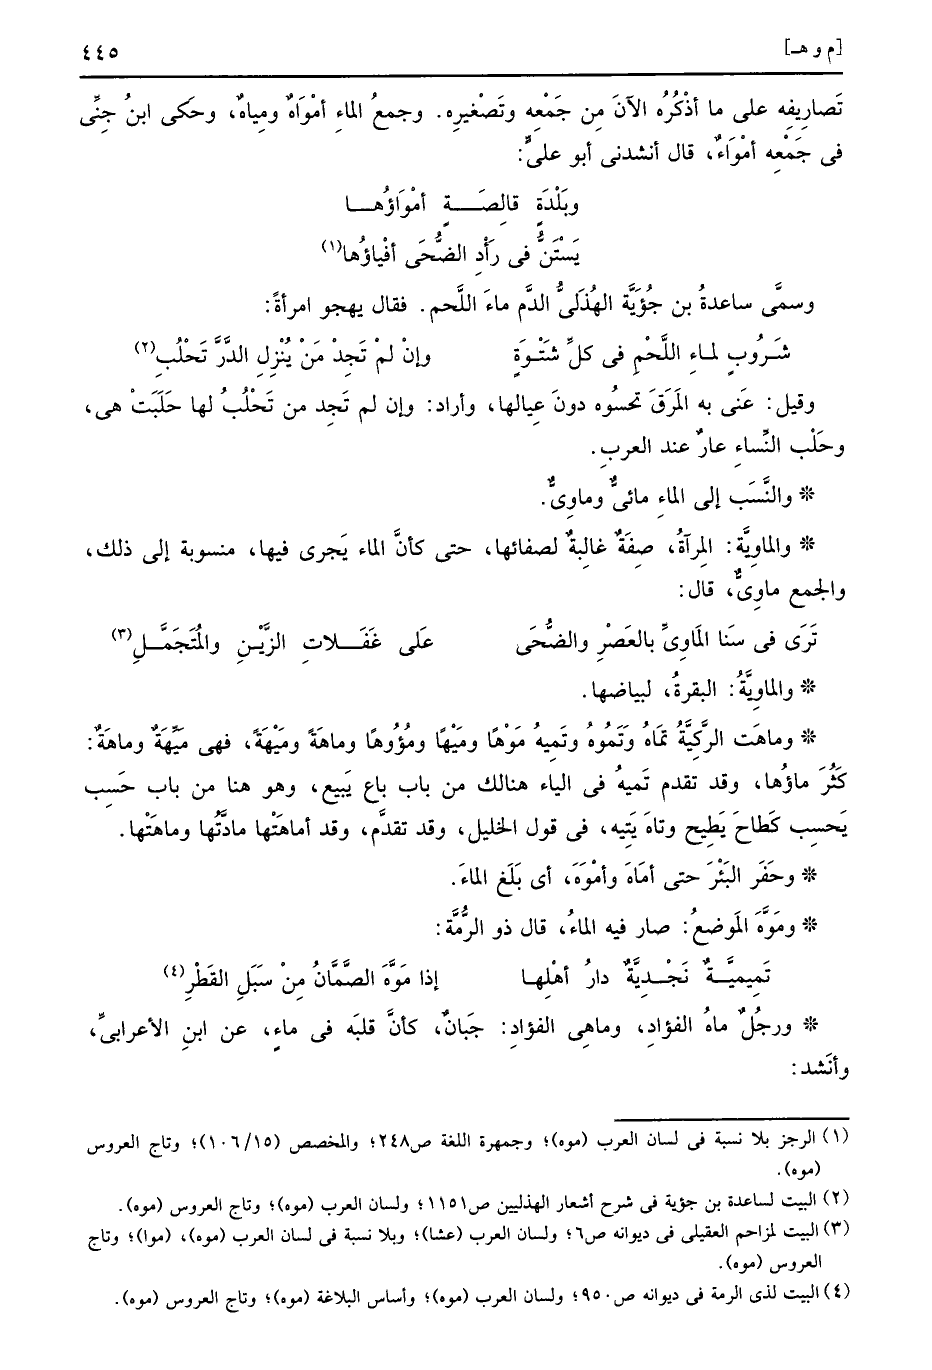 [م و هـ] ٤٤٥
تَصاريفِه على ما أذْكُرُه الآنَ مِن جَمْعِه وتَصْغيرِه. وجمعُ الماءِ أمْوَاهٌ ومياهٌ، وحَكى ابنُ جِنِّى
فى جَمْعِه أمْوَاءٌ، قال أنشدنى أبو علىٍّ:
وبَلْدَةٍ قالِصَـــــةٍ أمْوَاؤُهـــا
يَسْتَنُّ فى رَأْدِ الضُّحَى أفْياؤُها(١)
وسمَّى ساعدةُ بن جُؤيَّة الهُذَلىُّ الدَّم ماءَ اللَّحم. فقال يهجو امرأةً:
شَـرُوبٍ لمـاءِ اللَّحْمِ فى كلِّ شَتْـوَةٍ وإنْ لمْ تَجِدْ مَنْ يُنْزِلِ الدَّرَّ تَحْلُبِ(٢)
وقيل: عَنى به المَرَقَ تحسُوه دونَ عيالها، وأراد: وإن لم تَجد من تَحْلُبُ لها حلَبَتْ هى،
وحَلْب النِّساءِ عارٌ عند العربِ.
❊ والنَّسَب إلى الماءِ مائىٌّ وماوِىٌّ.
❊ والماوِيَّة: المِرآةُ، صِفَةٌ غالِبةٌ لصفائها، حتى كأنَّ الماء يَجرى فيها، منسوبة إلى ذلك،
والجمع ماوِىٌّ، قال:
تَرَى فى سَنَا المَاوِىِّ بالعَصْرِ والضُّحَى عَلى غَفَـــلاتِ الزَّيْـنِ والمُتَجَمَّــلِ(٣)
❊ والماوِيَّةُ: البقرةُ، لبياضها.
❊ وماهَت الرَّكِيَّةُ تَمَاهُ وَتَمُوه وتَمِيهُ مَوْهًا ومَيْهًا ومُؤُوهًا وماهَةً ومَيْهَةً، فهى مَيِّهَةٌ وماهَةٌ:
كَثُرَ ماؤُها، وقد تقدم تَميهُ فى الياء هنالك من باب باع يَبيع، وهو هنا من باب حَسِب
يَحسِب كَطاحَ يَطِيح وتاهَ يَتِيه، فى قول الخليل، وقد تقدَّم، وقد أماهَتْها مادَّتُها وماهَتْها.
❊ وحفَر البَئْرَ حتى أمَاهَ وأمْوَهَ، أى بَلَغ الماءَ.
❊ ومَوَّهَ المَوضعُ: صار فيه الماءُ، قال ذو الرُّمَّة:
تَمِيمِيَّـــةٌ نَجْــدِيَّةٌ دارُ أهْلِهـا إذا مَوَّهَ الصَّمَّانُ مِنْ سَبَلِ القَطْرِ(٤)
❊ ورجُلٌ ماهُ الفؤادِ، وماهِى الفؤادِ: جَبانٌ، كأنَّ قلبَه فى ماءٍ، عن ابنِ الأعرابىِّ،
وأنَشد:
(١) الرجز بلا نسبة فى لسان العرب (موه)؛ وجمهرة اللغة ص٢٤٨؛ والمخصص (١٠٦/١٥)؛ وتاج العروس
(موه).
(٢) البيت لساعدة بن جؤية فى شرح أشعار الهذليين ص١١٥١؛ ولسان العرب (موه)؛ وتاج العروس (موه).
(٣) البيت لمزاحم العقيلى فى ديوانه ص٦؛ ولسان العرب (عشا)؛ وبلا نسبة فى لسان العرب (موه)، (موا)؛ وتاج
العروس (موه).
(٤) البيت لذى الرمة فى ديوانه ص٩٥٠؛ ولسان العرب (موه)؛ وأساس البلاغة (موه)؛ وتاج العروس (موه).